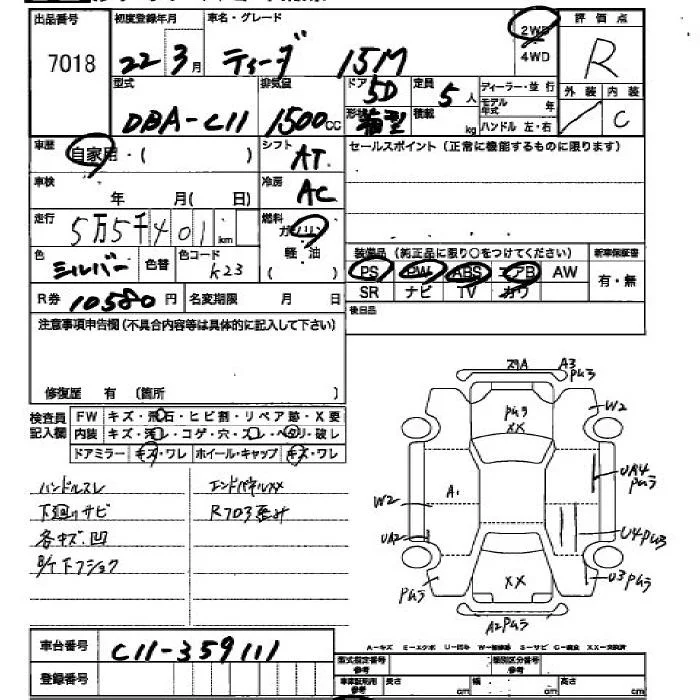 出品番号 初度登録年月 車名・グレード 2WD 4WD 評価点
7018 22年3月 ティーダ 15M R
型式 排気量 ドア 5D 定員 5人 ディーラー・並行 外装 内装
DBA-C11 1500cc 形状 箱型 積載 kg モデル年式 年 C
ハンドル 左・右
車歴 自家用・( ) シフト AT セールスポイント(正常に機能するものに限ります)
車検 年 月(日) 冷房 AC
走行 5万5千401km 燃料 ガソリン 軽油 ( )
色 シルバー 色替 色コード K23
装備品(純正品に限り○をつけてください) 新車保証書
PS PW ABS エアB AW 有・無
SR ナビ TV カワ
R券 10580円 名変期限 月 日 後日品
注意事項申告欄(不具合内容等は具体的に記入して下さい)
修復歴 有 〔箇所 〕
検査員記入欄 FW キズ・飛石・ヒビ割・リペア跡・X要
内装 キズ・汚レ・コゲ・穴・スレ・ヘタリ・破レ
ドアミラー キズ・ワレ ホイール・キャップ キズ・ワレ
ハンドルスレ エンドパネルXX
下廻りサビ
各キズ、凹
29A A3
XX W2
A. W2 UA2
U4 U3
XX
A2
車台番号 C11-359111
登録番号
A-キズ E-エクボ U-凹み S-サビ XX-交換済
型式指定番号 参考 類別区分番号 参考
車庫証明用 参考 長さ cm 幅 cm 高さ cm